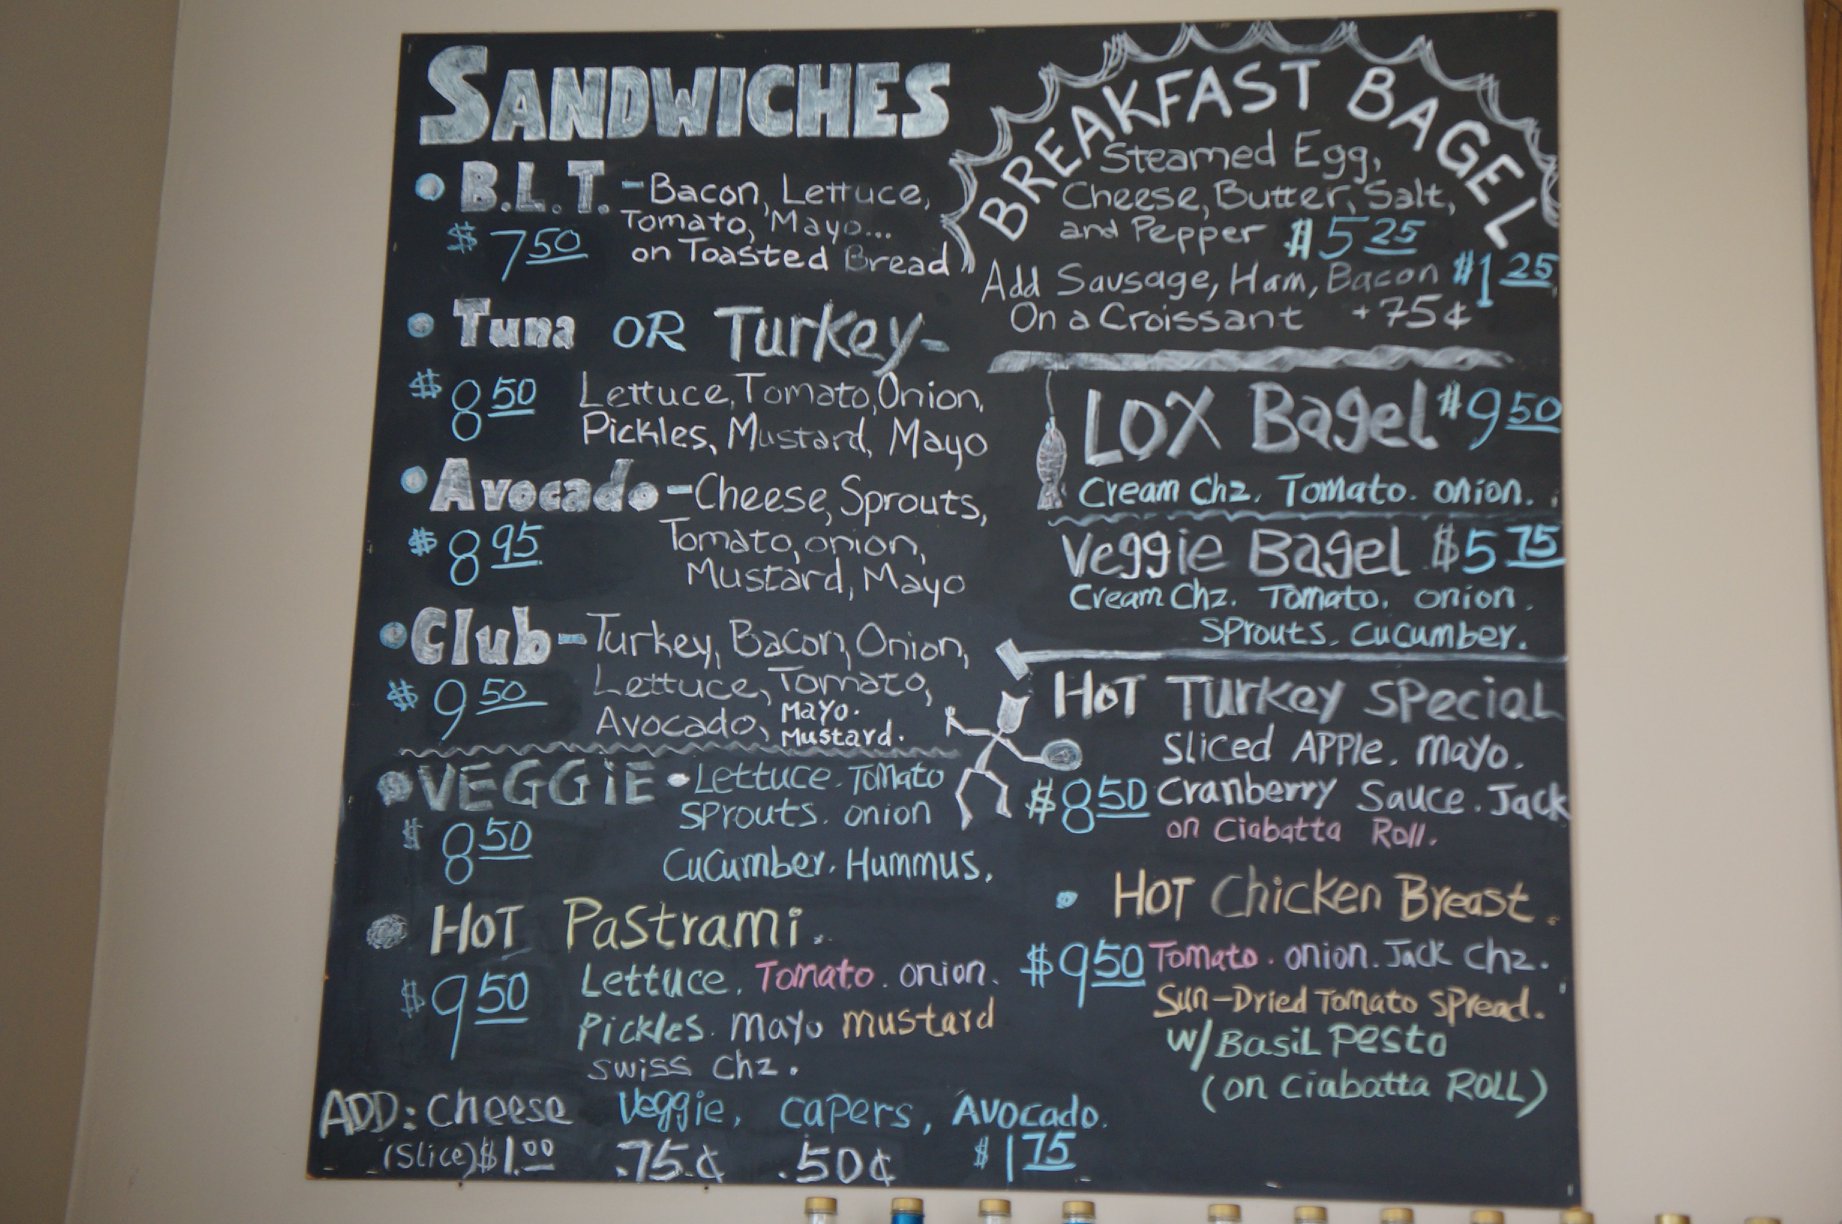 SANDWICHES
B.L.T. - Bacon, Lettuce,
$7 50 Tomato, Mayo...
on Toasted Bread
Tuna OR Turkey-
$8 50 Lettuce, Tomato, Onion,
Pickles, Mustard, Mayo
Avocado - Cheese, Sprouts,
$8 95 Tomato, onion,
Mustard, Mayo
Club - Turkey, Bacon, Onion,
$9 50 Lettuce, Tomato,
Avocado, Mayo.
Mustard.
VEGGiE • Lettuce. Tomato
$8 50 Sprouts. onion
Cucumber. Hummus.
HOT Pastrami.
$9 50 Lettuce. Tomato. onion.
Pickles. mayo mustard
Swiss Chz.
ADD: Cheese Veggie, capers, Avocado.
(Slice) $1.00 .75¢ .50¢ $1 75
BREAKFAST BAGEL
Steamed Egg,
Cheese, Butter, Salt,
and Pepper $5 25
Add Sausage, Ham, Bacon $1 25
On a Croissant +75¢
LOX Bagel $9 50
Cream Chz. Tomato. onion.
Veggie Bagel $5 75
Cream Chz. Tomato. onion.
Sprouts. Cucumber.
HOT Turkey Special
Sliced Apple. mayo.
$8 50 Cranberry Sauce. Jack
on Ciabatta Roll.
HOT Chicken Breast.
$9 50 Tomato. onion. Jack Chz.
Sun-Dried Tomato Spread.
w/Basil Pesto
(on Ciabatta ROLL)